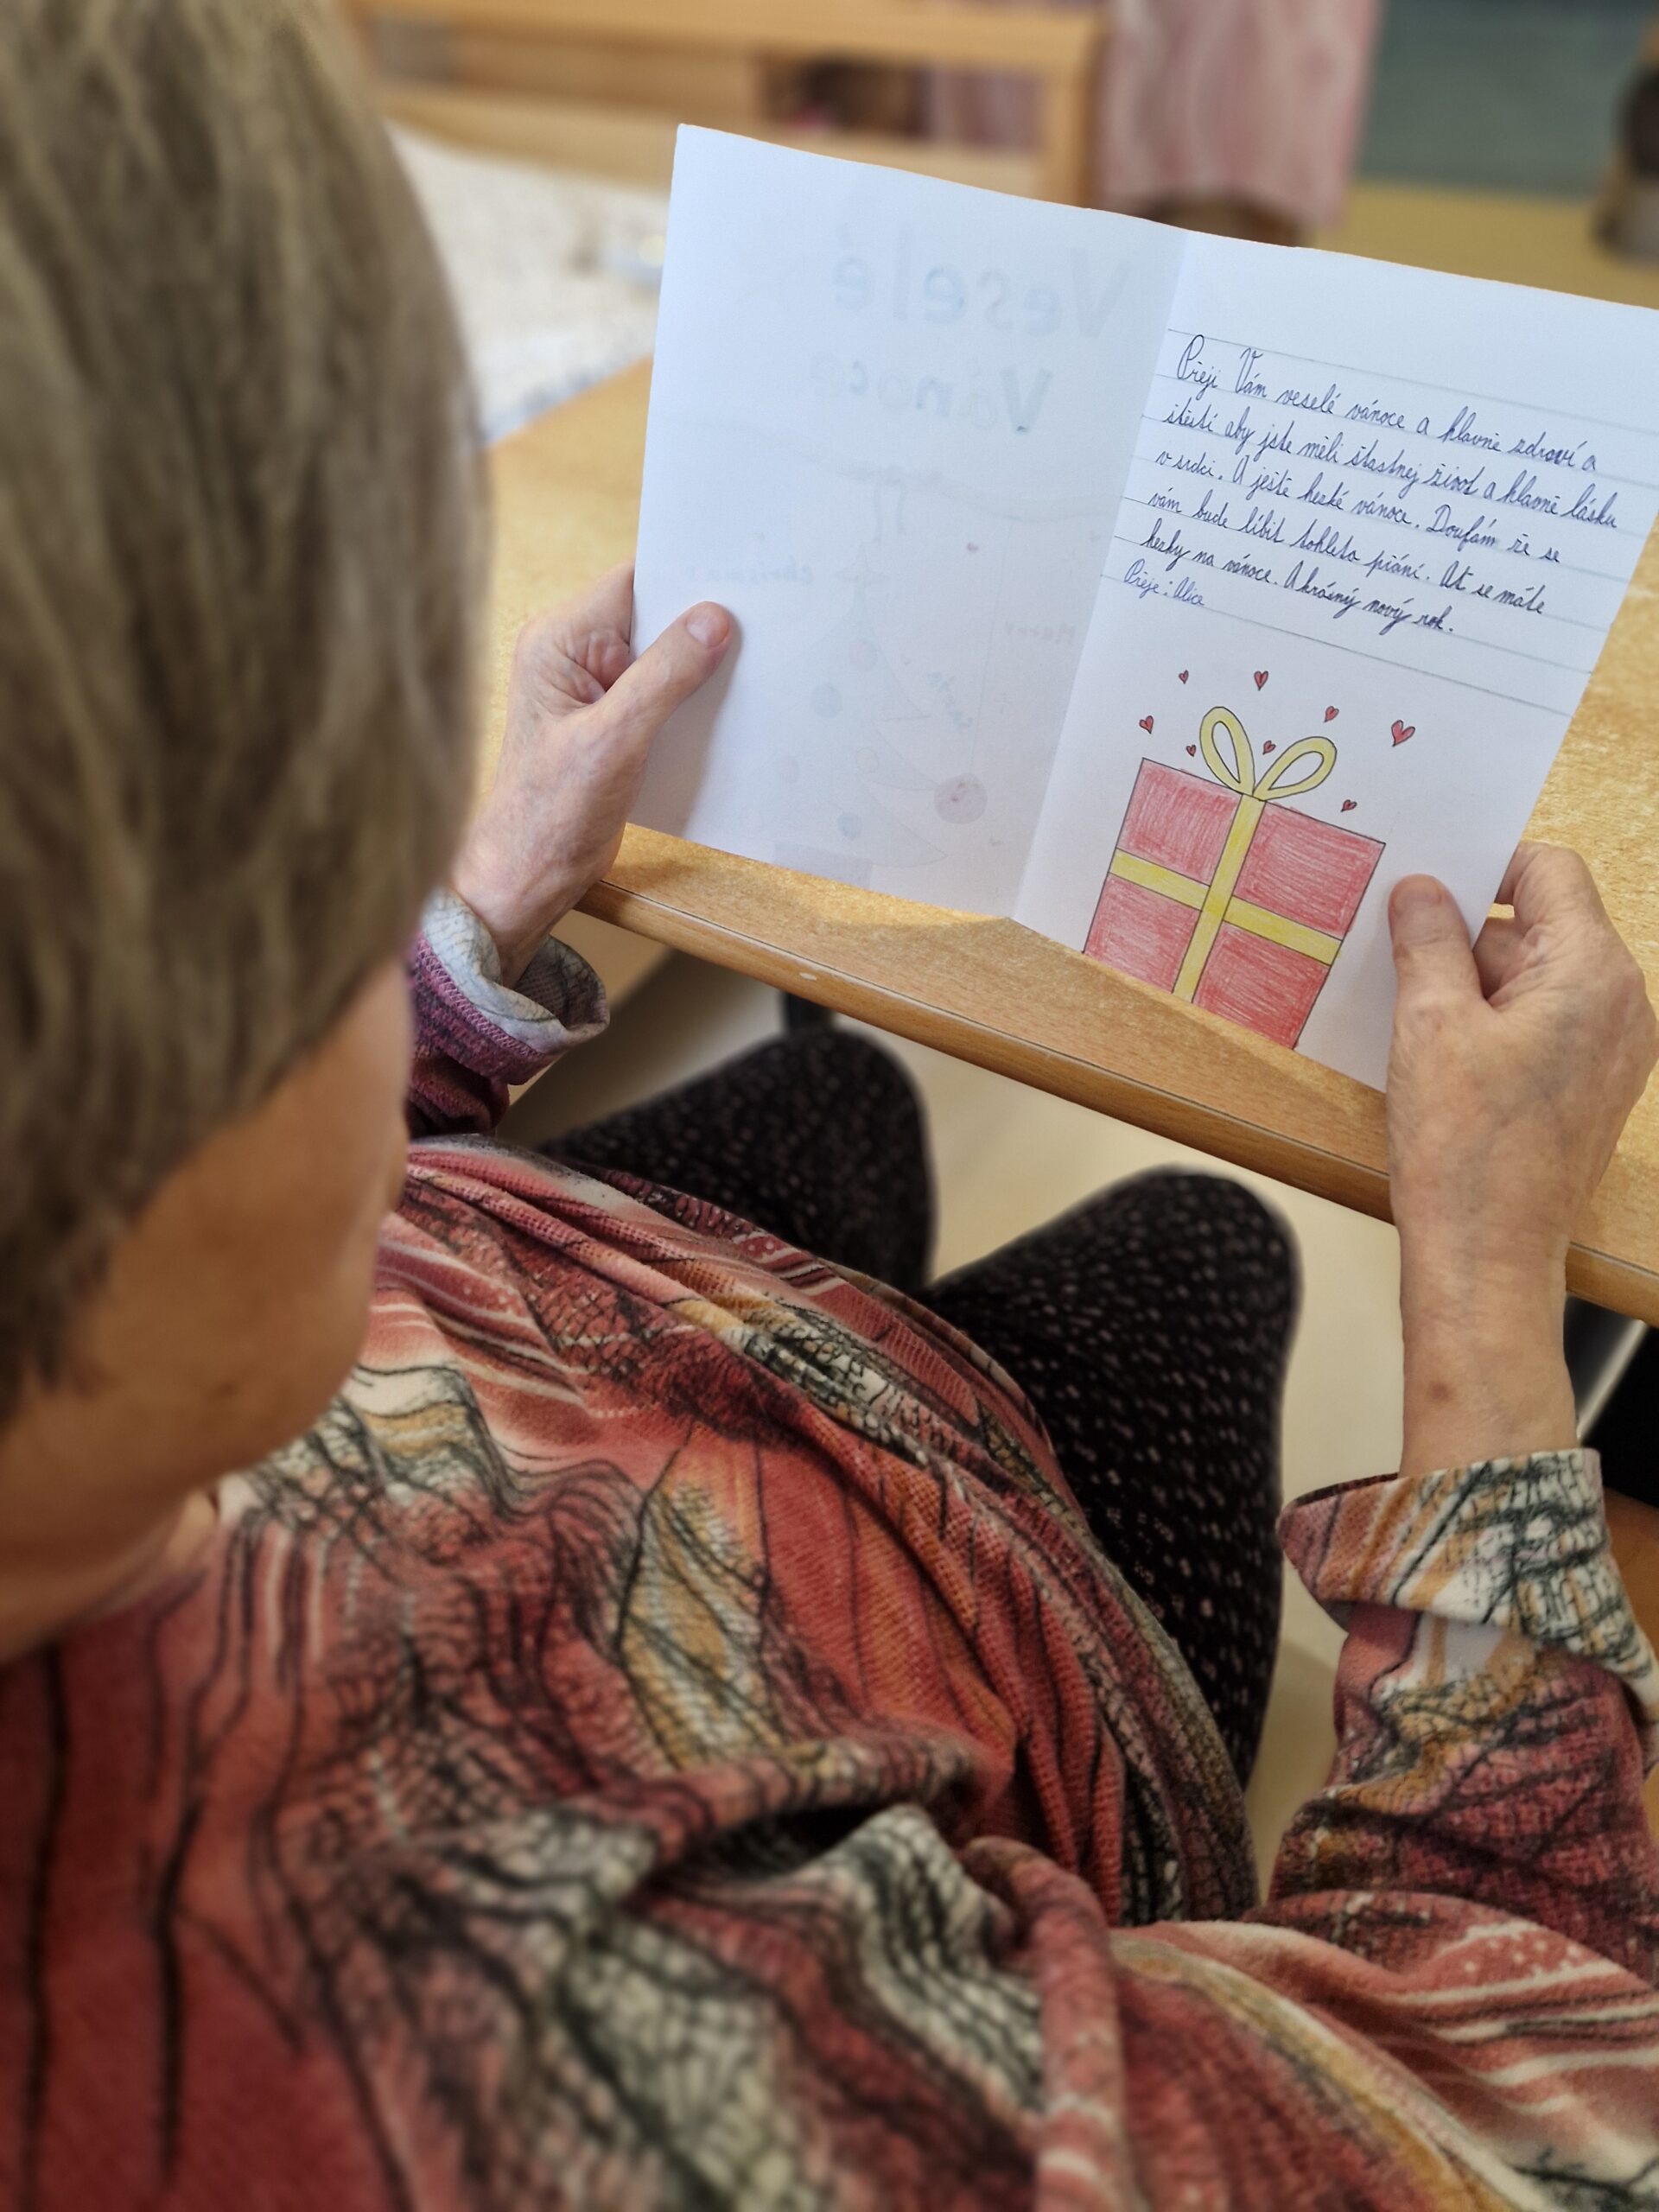 Veselé
Vánoce
christmas
Merry
Přeji Vám veselé vánoce a hlavně zdroví a
štěstí aby jste měli štastnej život a hlavně lásku
v srdci. A ještě hezké vánoce. Doufám že se
vám bude líbit tohleto přání. At se máte
hezky na vánoce. A krásný nový rok.
Přeje: Alice